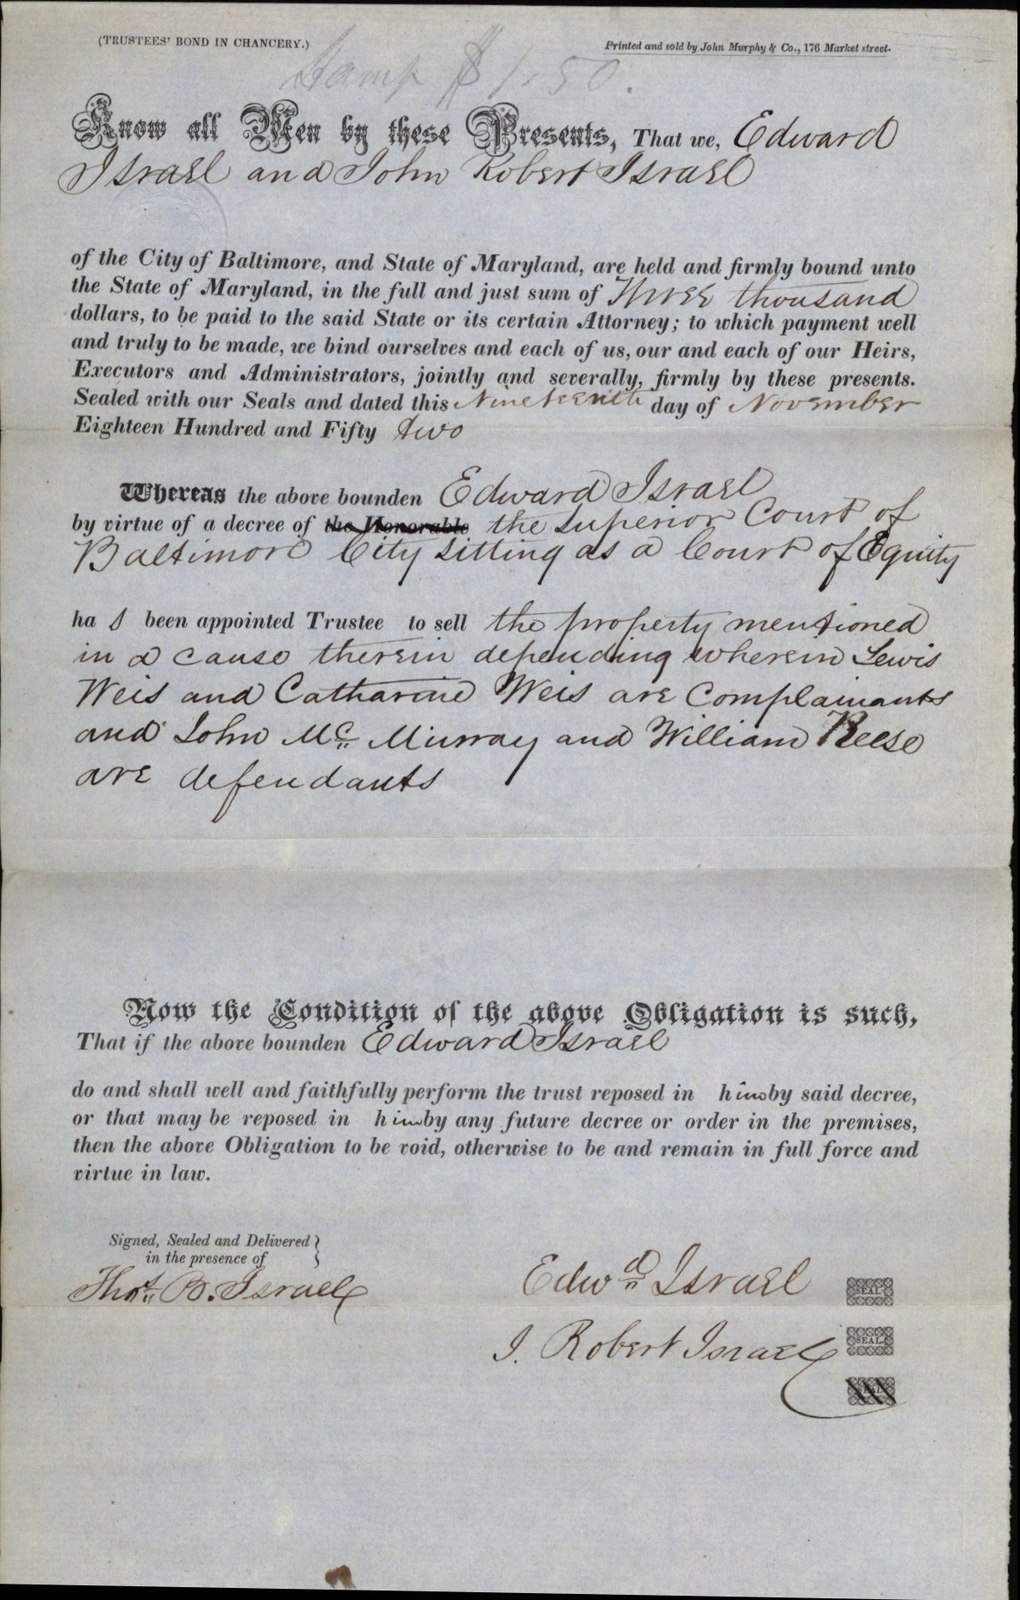 (TRUSTEES' BOND IN CHANCERY.)
Printed and sold by John Murphy & Co., 176 Market street.
Stamp $1.50.
Know all Men by these Presents, That we, Edward
Israel and John Robert Israel
of the City of Baltimore, and State of Maryland, are held and firmly bound unto
the State of Maryland, in the full and just sum of Three thousand
dollars, to be paid to the said State or its certain Attorney; to which payment well
and truly to be made, we bind ourselves and each of us, our and each of our Heirs,
Executors and Administrators, jointly and severally, firmly by these presents.
Sealed with our Seals and dated this Nineteenth day of November
Eighteen Hundred and Fifty two
Whereas the above bounden Edward Israel
by virtue of a decree of the Honorable the Superior Court of
Baltimore City sitting as a Court of Equity
ha s been appointed Trustee to sell the property mentioned
in a cause therein depending wherein Lewis
Weis and Catharine Weis are Complainants
and John Mc Murray and William Reese
are defendants
Now the Condition of the above Obligation is such,
That if the above bounden Edward Israel
do and shall well and faithfully perform the trust reposed in him by said decree,
or that may be reposed in him by any future decree or order in the premises,
then the above Obligation to be void, otherwise to be and remain in full force and
virtue in law.
Signed, Sealed and Delivered
in the presence of
Thos. B. Israel
Edwd Israel SEAL.
J. Robert Israel SEAL.